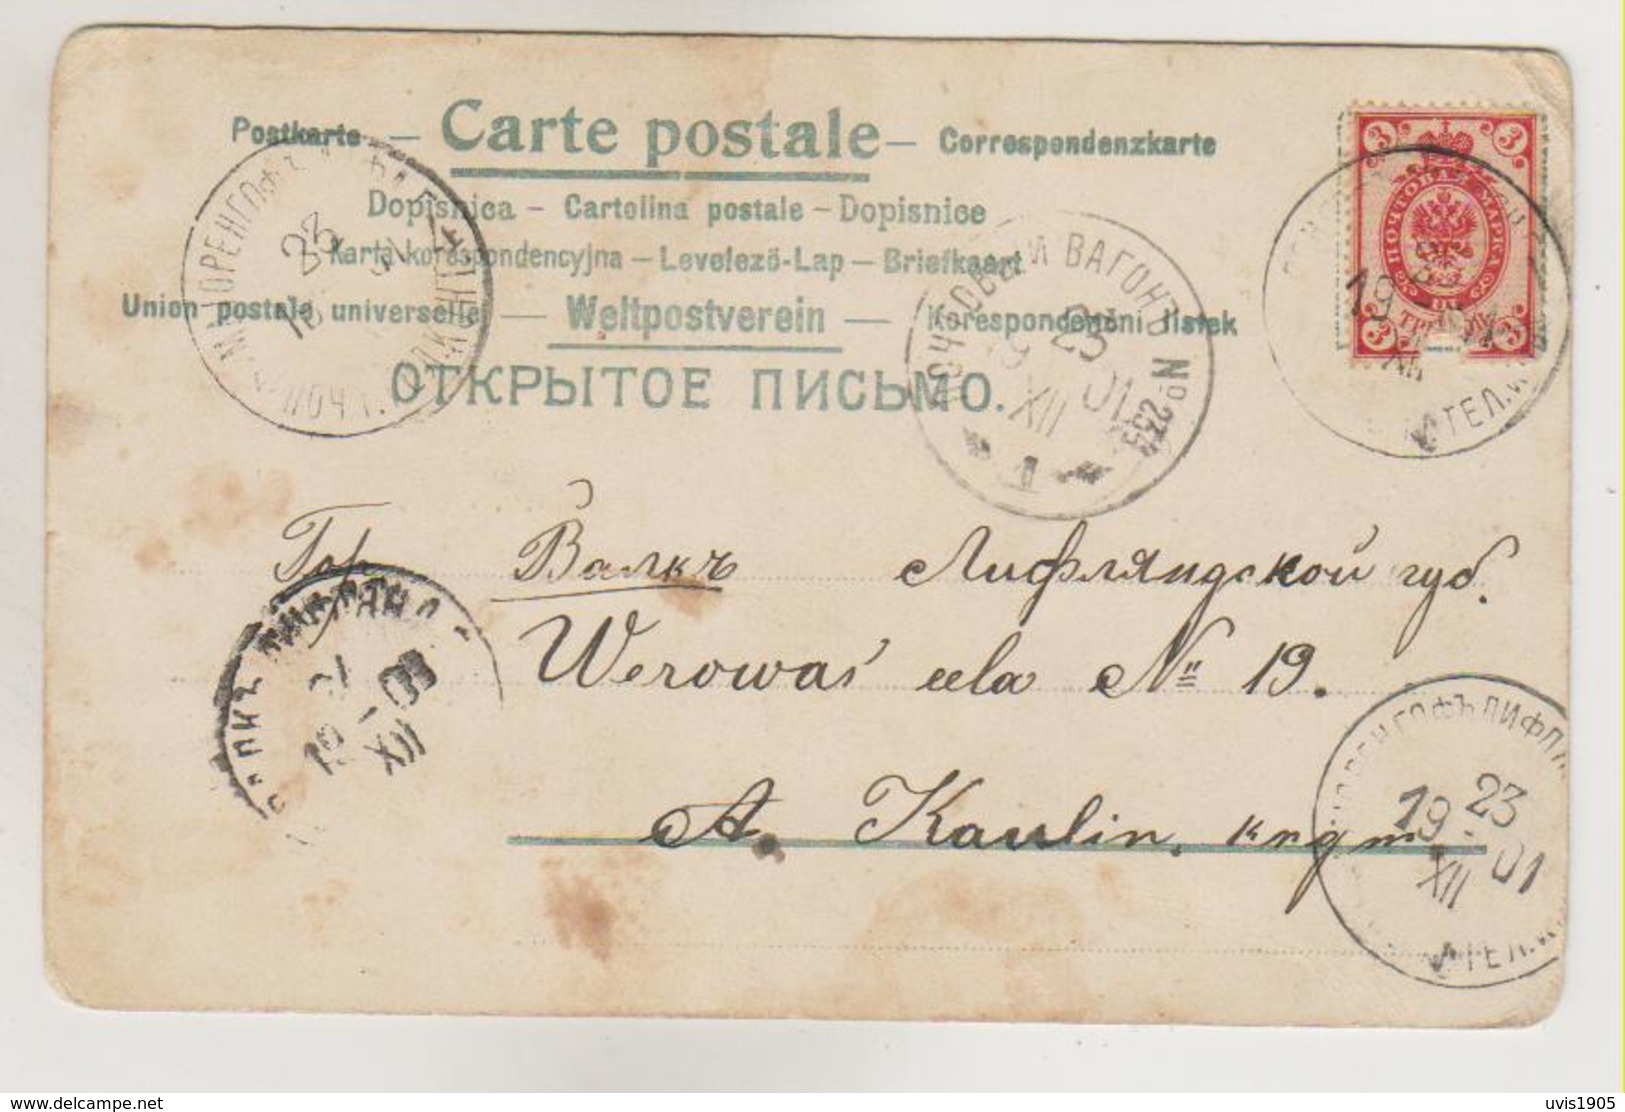 Postkarte — Carte postale — Correspondenzkarte
Dopisnica – Cartolina postale – Dopisnice
Karta korespondencyjna – Levelező-Lap – Briefkaart
Union postale universelle — Weltpostverein — Korespondenčni listek
ОТКРЫТОЕ ПИСЬМО.
3 3
ПОЧТОВАЯ МАРКА
3 3
19 01 XII
ТЕЛ.
23
ПОЧТОВЫЙ ВАГОНЪ № 235
23 XII 01
Гор Валкъ Лифляндской губ.
Werowas eela № 19.
A. Kaulin,
19 XII 01
ЛИФЛЯНД
19 23 XII 01
ТЕЛ.
delcampe.net
uvis1905